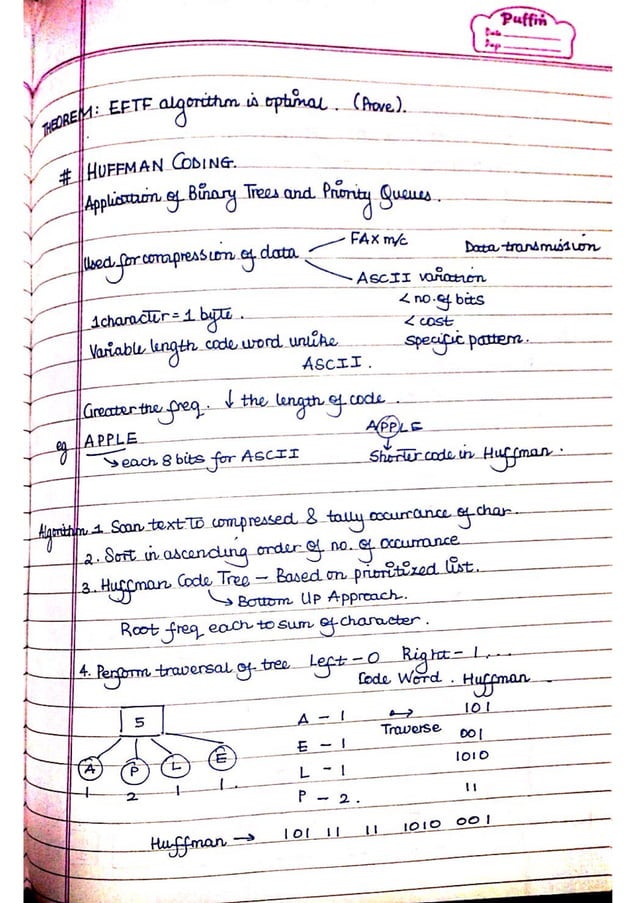 Puffin
Date
Page
THEOREM: EFTF algorithm is optimal. (Prove).
# HUFFMAN CODING.
Application of Binary Trees and Priority Queues.
Used for compression of data FAX m/c Data transmission
ASCII variation
< no. of bits
1 character = 1 byte. < cost
Variable length code word unlike specific pattern.
ASCII.
Greater the freq. ↓ the length of code.
eg APPLE APPLE
↳ each 8 bits for ASCII Shorter code in Huffman.
Algorithm 1 Scan text To compressed & tally occurrance of char.
2. Sort in ascending order of no. of occurrance
3. Huffman Code Tree – Based on prioritized list.
↳ Bottom Up Approach.
Root freq each to sum of character.
4. Perform traversal of tree Left – 0 Right – 1...
Code Word. Huffman
5 A – 1 ↔ 101
Traverse
E – 1 001
A P L E L – 1 1010
1 2 1 1. P – 2. 11
Huffman → 101 11 11 1010 001